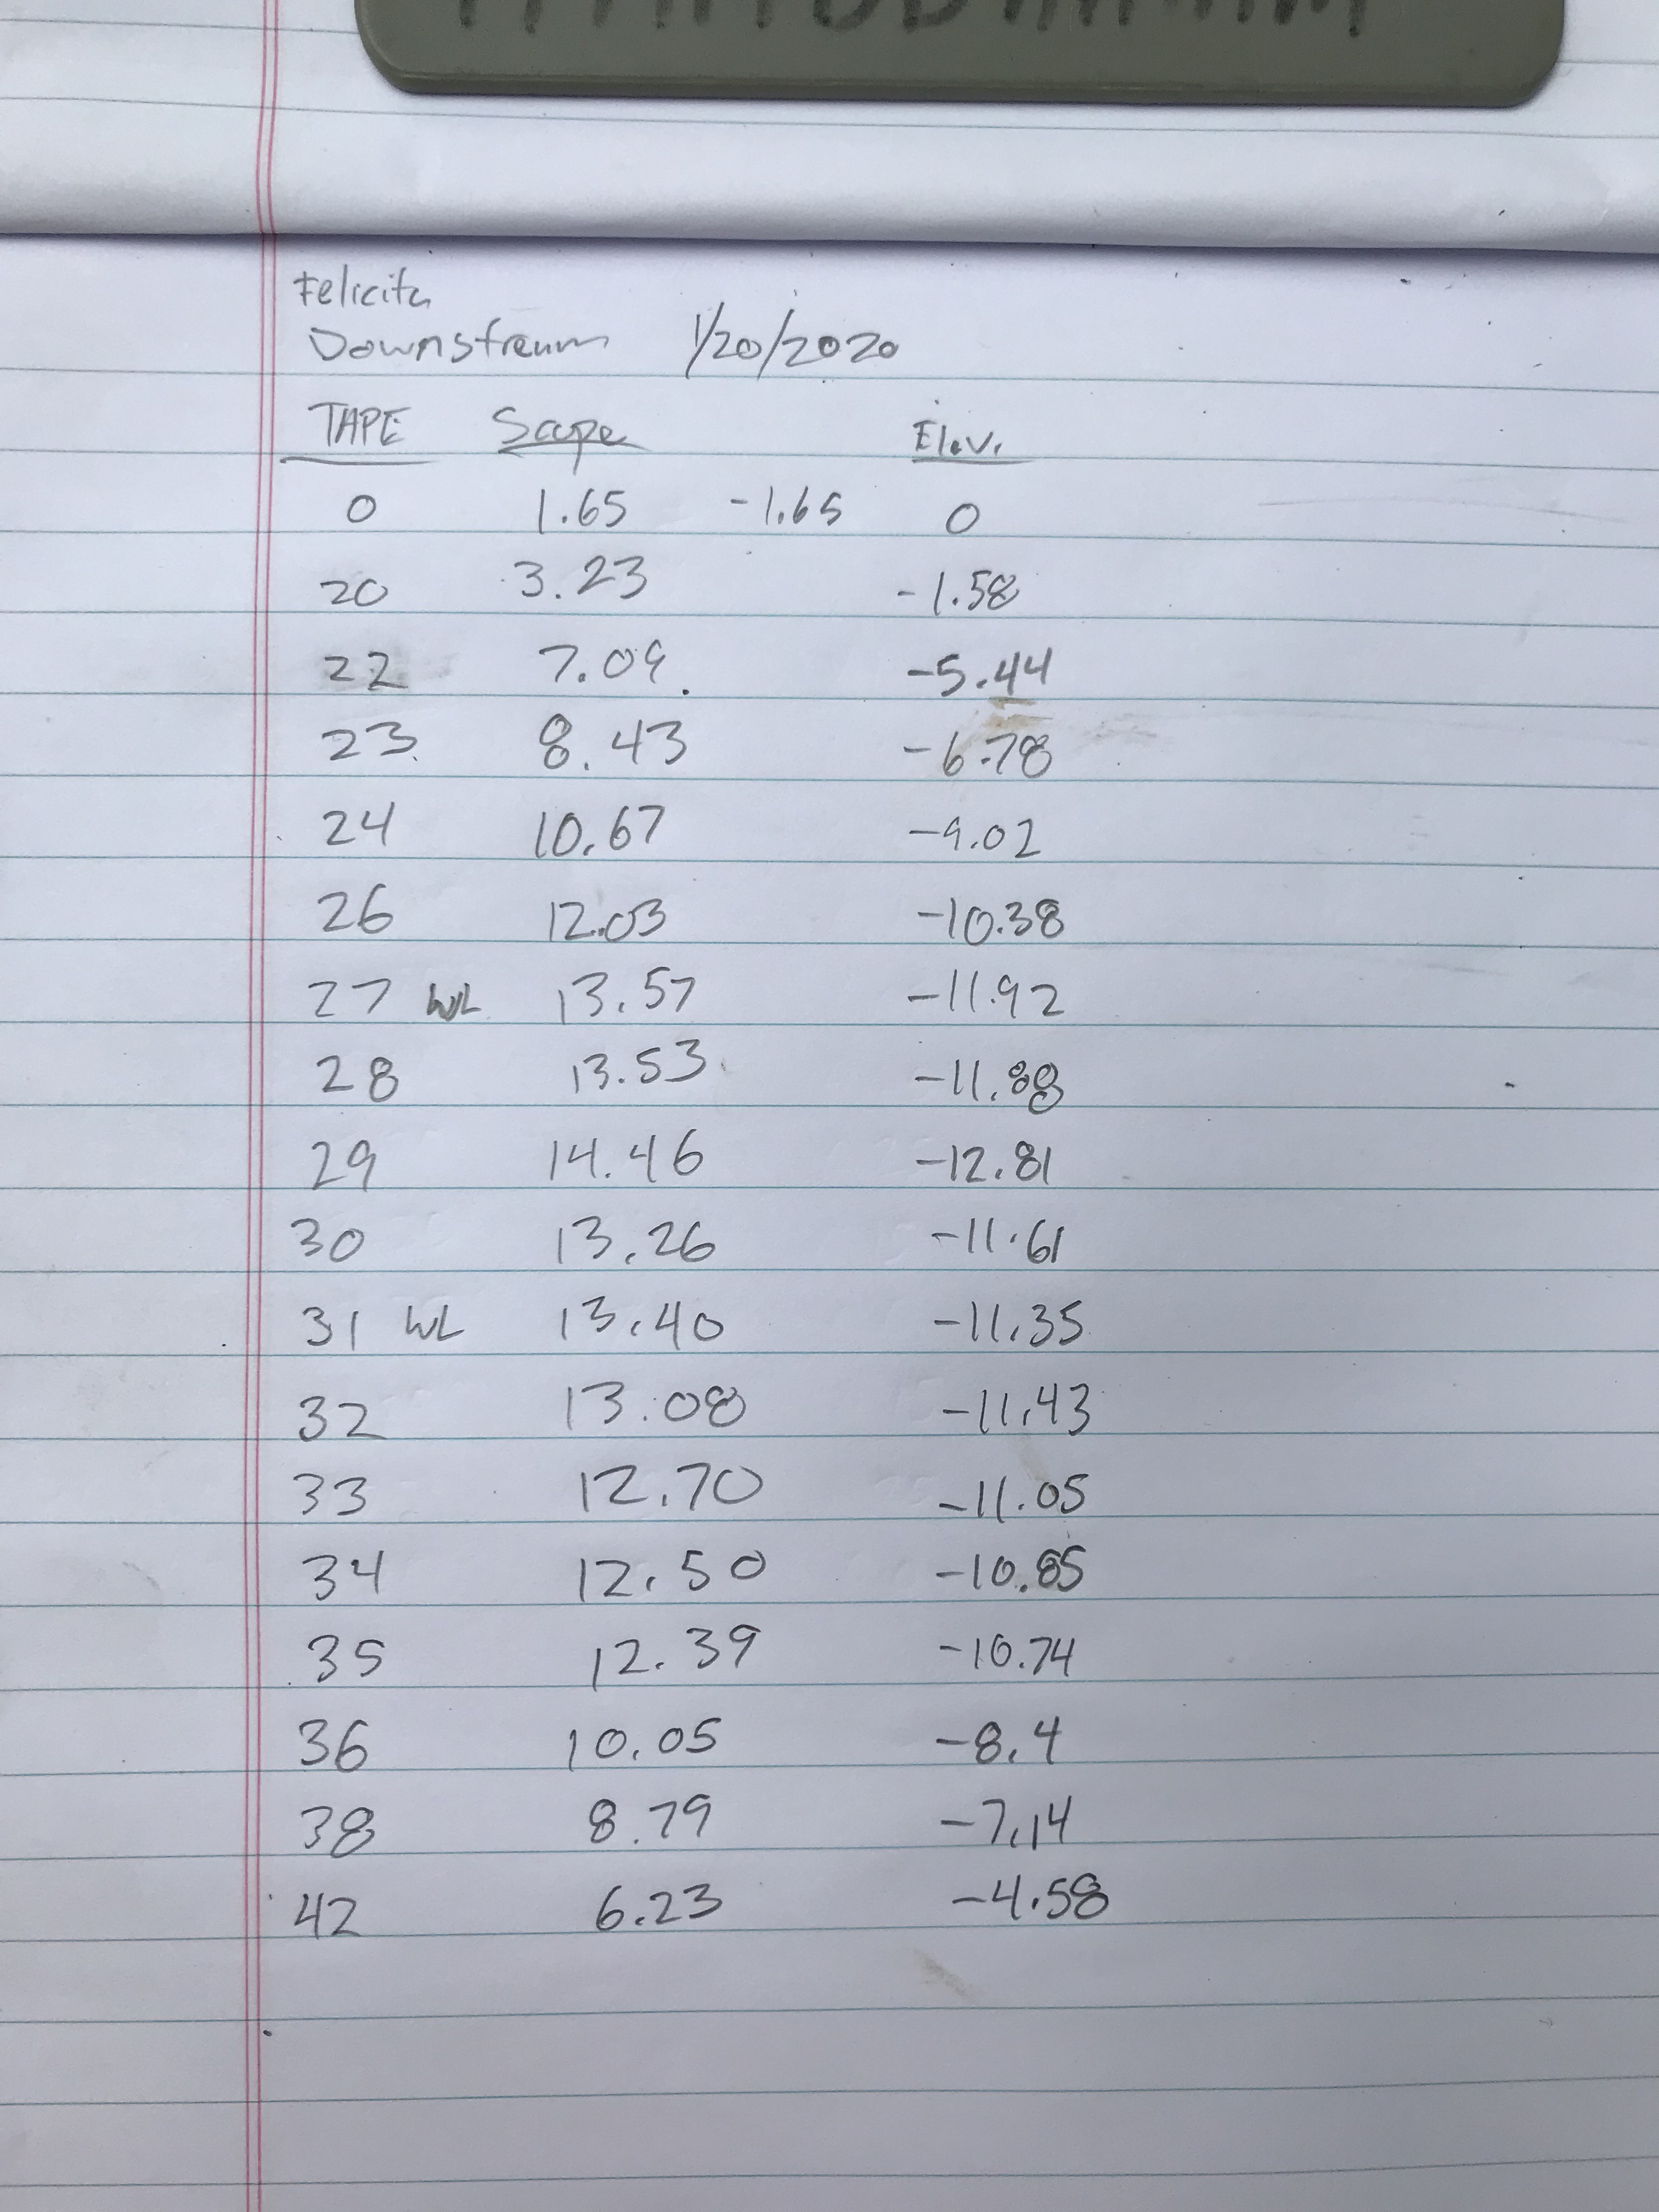 Felicita
Downstream 1/20/2020
TAPE Scope Elev.
0 1.65 -1.65 0
20 3.23 -1.58
22 7.09 -5.44
23 8.43 -6.78
24 10.67 -9.02
26 12.03 -10.38
27 WL 13.57 -11.92
28 13.53 -11.88
29 14.46 -12.81
30 13.26 -11.61
31 WL 13.40 -11.35
32 13.08 -11.43
33 12.70 -11.05
34 12.50 -10.85
35 12.39 -10.74
36 10.05 -8.4
38 8.79 -7.14
42 6.23 -4.58